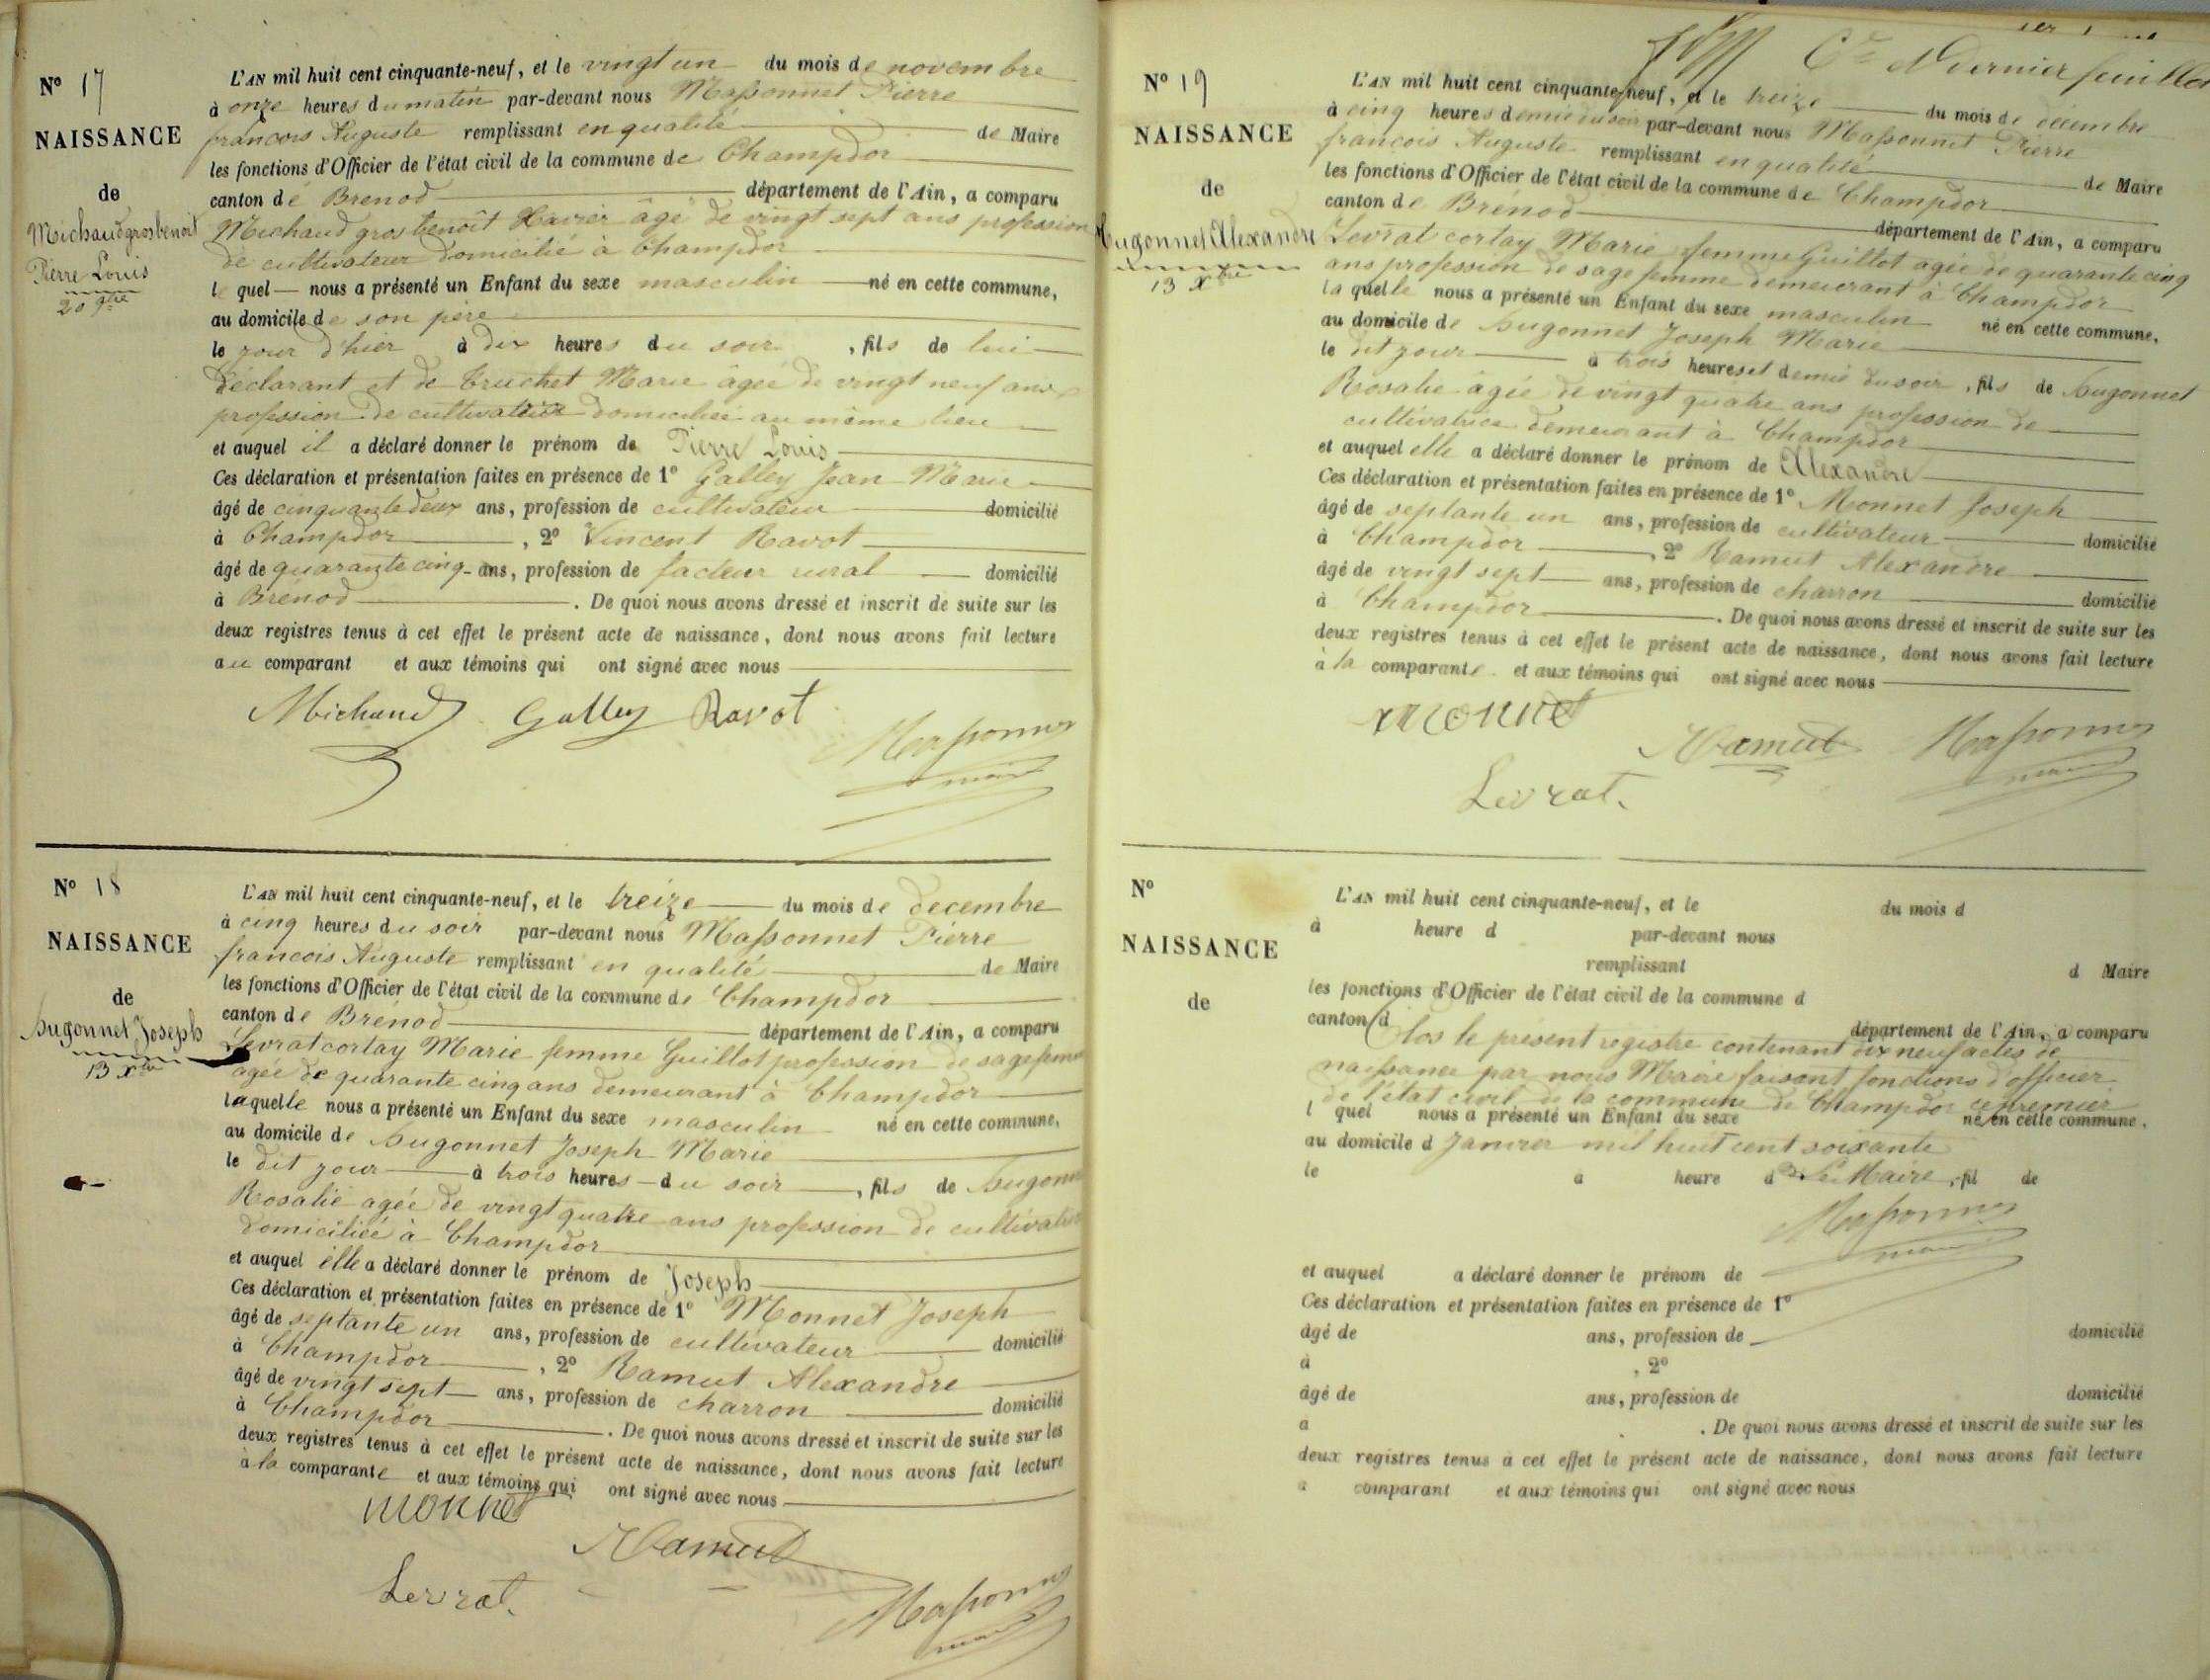 N° 17
NAISSANCE
de
Michaud gros benoit
Pierre Louis
20 9bre
L'AN mil huit cent cinquante-neuf, et le vingt un du mois de novembre
à onze heures du matin par-devant nous Massonnet Pierre
francois Auguste remplissant en qualité de Maire
les fonctions d'Officier de l'état civil de la commune de Champdor
canton de Brenod département de l'Ain, a comparu
Michaud gros benoît Xavier âgé de vingt sept ans profession
de cultivateur domicilié à Champdor
le quel nous a présenté un Enfant du sexe masculin né en cette commune,
au domicile de son père
le jour d'hier à dix heures du soir, fils de lui
déclarant et de Truchet Marie âgée de vingt neuf ans
profession de cultivatrice domiciliée au même lieu
et auquel il a déclaré donner le prénom de Pierre Louis
Ces déclaration et présentation faites en présence de 1° Galley Jean Marie
âgé de cinquante deux ans, profession de cultivateur domicilié
à Champdor, 2° Vincent Ravot
âgé de quarante cinq ans, profession de facteur rural domicilié
à Brénod. De quoi nous avons dressé et inscrit de suite sur les
deux registres tenus à cet effet le présent acte de naissance, dont nous avons fait lecture
au comparant et aux témoins qui ont signé avec nous
Michaud Galley Ravot
Massonnet
maire
N° 18
NAISSANCE
de
Hugonnet Joseph
13 Xbre
L'AN mil huit cent cinquante-neuf, et le treize du mois de decembre
à cinq heures du soir par-devant nous Massonnet Pierre
francois Auguste remplissant en qualité de Maire
les fonctions d'Officier de l'état civil de la commune de Champdor
canton de Brénod département de l'Ain, a comparu
Levrat cortay Marie femme Guillot profession de sage femme
agée de quarante cinq ans demeurant à Champdor
laquelle nous a présenté un Enfant du sexe masculin né en cette commune,
au domicile de Hugonnet Joseph Marie
le dit jour à trois heures du soir, fils de Hugonnet
Rosalie agée de vingt quatre ans profession de cultivatrice
domiciliée à Champdor
et auquel elle a déclaré donner le prénom de Joseph
Ces déclaration et présentation faites en présence de 1° Monnet Joseph
âgé de septante un ans, profession de cultivateur domicilié
à Champdor, 2° Ramut Alexandre
âgé de vingt sept ans, profession de charron domicilié
à Champdor. De quoi nous avons dressé et inscrit de suite sur les
deux registres tenus à cet effet le présent acte de naissance, dont nous avons fait lecture
à la comparante et aux témoins qui ont signé avec nous
monnet
Ramut
Levrat.
Massonnet
maire
dernier feuillet
N° 19
NAISSANCE
de
Hugonnet Alexandre
13 Xbre
L'AN mil huit cent cinquante-neuf, et le treize du mois de décembre
à cinq heures demie du soir par-devant nous Massonnet Pierre
françois Auguste remplissant en qualité de Maire
les fonctions d'Officier de l'état civil de la commune de Champdor
canton de Brénod département de l'Ain, a comparu
Levrat cortay Marie femme Guillot agée de quarante cinq
ans profession de sage femme demeurant à Champdor
laquelle nous a présenté un Enfant du sexe masculin né en cette commune,
au domicile de Hugonnet Joseph Marie
le dit jour à trois heures et demie du soir, fils de Hugonnet
Rosalie âgée de vingt quatre ans profession de
cultivatrice demeurant à Champdor
et auquel elle a déclaré donner le prénom de Alexandre
Ces déclaration et présentation faites en présence de 1° Monnet Joseph
âgé de septante un ans, profession de cultivateur domicilié
à Champdor, 2° Ramut Alexandre
âgé de vingt sept ans, profession de charron domicilié
à Champdor. De quoi nous avons dressé et inscrit de suite sur les
deux registres tenus à cet effet le présent acte de naissance, dont nous avons fait lecture
à la comparante et aux témoins qui ont signé avec nous
monnet
Ramut Massonnet
maire
Levrat.
N°
NAISSANCE
de
L'AN mil huit cent cinquante-neuf, et le du mois d
à heure d par-devant nous
remplissant d Maire
les fonctions d'Officier de l'état civil de la commune d
canton d département de l'Ain, a comparu
Clos le présent registre contenant dix neuf actes de
naissance par nous Maire faisant fonctions d'officier
de l'état civil de la commune de Champdor ce premier
l quel nous a présenté un Enfant du sexe né en cette commune,
au domicile d Janvier mil huit cent soixante
le à heure d Le Maire, fil de
Massonnet
maire
et auquel a déclaré donner le prénom de
Ces déclaration et présentation faites en présence de 1°
âgé de ans, profession de domicilié
à , 2°
âgé de ans, profession de domicilié
à . De quoi nous avons dressé et inscrit de suite sur les
deux registres tenus à cet effet le présent acte de naissance, dont nous avons fait lecture
a comparant et aux témoins qui ont signé avec nous